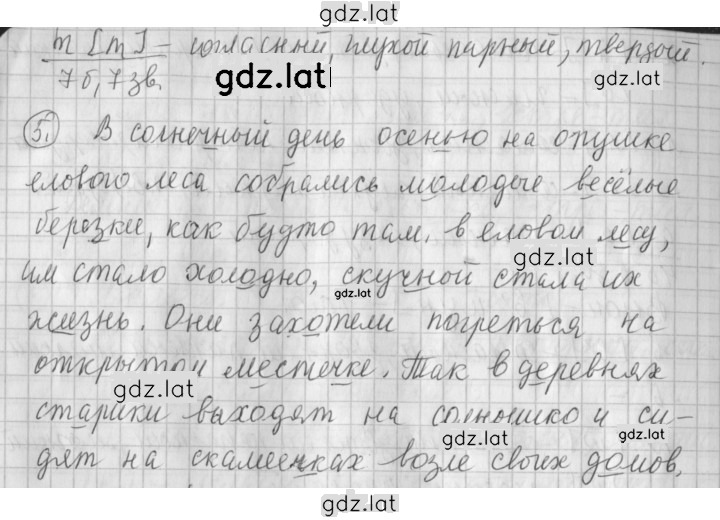 gdz.lat
т [т] – согласный, глухой парный, твердый.
7б, 7 зв.
gdz.lat
gdz.lat
5. В солнечный день осенью на опушке
елового леса собрались молодые весёлые
gdz.lat
березки, как будто там, в еловом лесу,
gdz.lat
им стало холодно, скучной стала их
gdz.lat
жизнь. Они захотели погреться на
открытом местечке. Так в деревнях
gdz.lat
старики выходят на солнышко и си-
gdz.lat
gdz.lat
дят на скамеечках возле своих домов,
gdz.lat